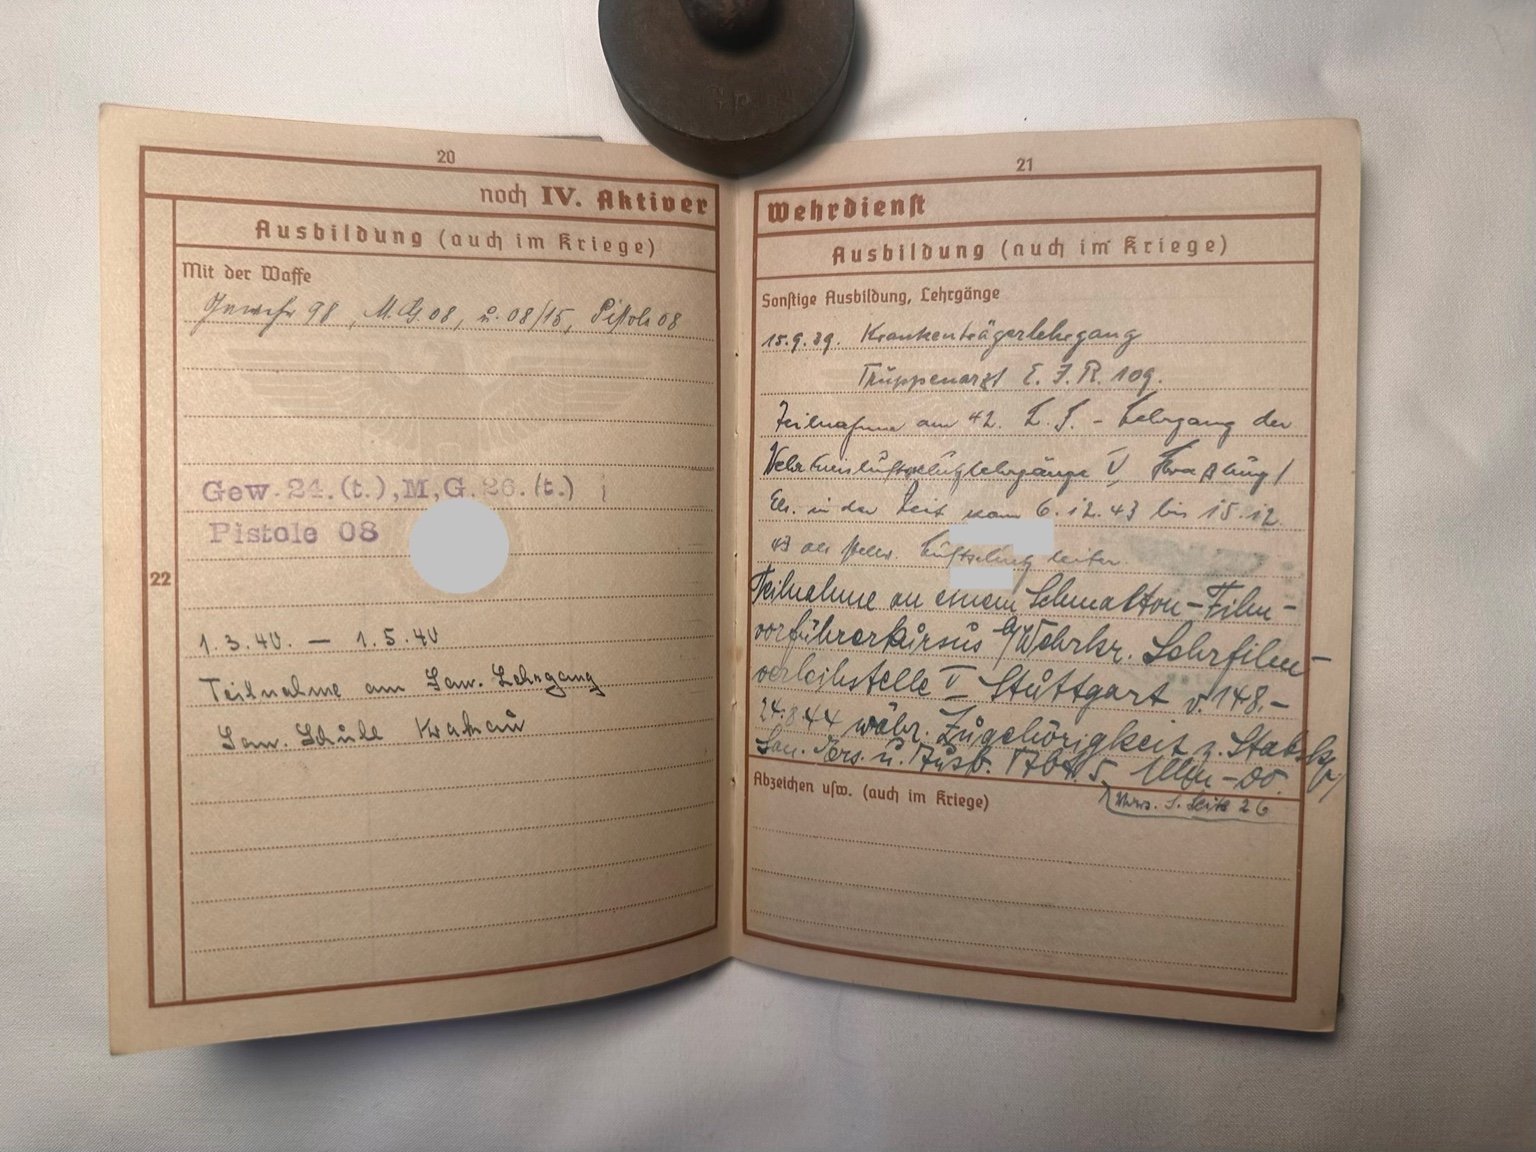 20
noch IV. Aktiver
Ausbildung (auch im Kriege)
Mit der Waffe
Gewehr 98, M.G. 08, u. 08/15, Pistole 08
Gew. 24.(t.),M,G.26.(t.)
Pistole 08
22
1.3.40. — 1.5.40
Teilnahme am San. Lehrgang
San. Schule Krakau
21
Wehrdienst
Ausbildung (auch im Kriege)
Sonstige Ausbildung, Lehrgänge
15.9.39. Krankenträgerlehrgang
Truppenarzt E. J. R. 109.
Teilnahme am 42. L. S. - Lehrgang der
Wehrkreisluftschutzlehrgänge V, Straßburg/
Els. in der Zeit vom 6.12.43 bis 15.12.
43 als stellv. Luftschutzleiter.
Teilnahme an einem Schmalton-Film-
vorführerkursus b/Wehrkr. Lehrfilm-
verleihstelle V Stuttgart v. 14.8.-
24.8.44 währ. Zugehörigkeit z. Stabskp/
San. Ers. u. Ausb. Abt. 5 Ulm-Do.
S. Seite 26
Abzeichen usw. (auch im Kriege)